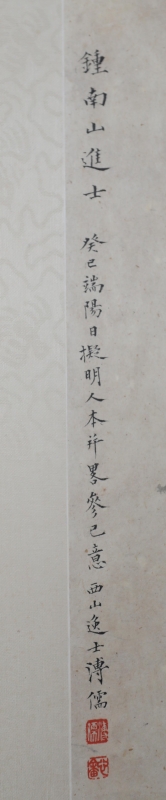 鍾南山進士 癸巳端陽日擬明人本并畧參己意 西山逸士溥儒